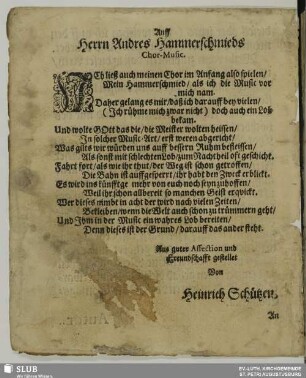 Auff
Herrn Andres Hammerschmieds
Chor-Music.
ICh ließ auch meinen Chor im Anfang also spielen/
Mein Hammerschmied/ als ich die Music vor
mich nam.
Daher gelang es mir/ daß ich darauff bey vielen/
(Ich rühme mich zwar nicht) doch auch ein Lob
bekam.
Und wolte GOtt das die/ die Meister wolten heissen/
In solcher Music Art/ erst weren abgericht/
Was gilts wir würden uns auff bessern Ruhm befleissen/
Als sonst mit schlechtem Lob/ zum Nachtheil oft geschicht.
Fahrt fort/ als wie ihr thut/ der Weg ist schon getroffen/
Die Bahn ist auffgesperrt/ ihr habt den Zweck erblickt.
Es wird ins künfftge mehr von euch noch seyn zuhoffen/
Weil ihr schon allbereit so manchen Geist erqvickt.
Wer dieses nimbt in acht der wird nach vielen Zeiten/
Bekleiben/ wenn die Welt auch schon zu trümmern geht/
Und Ihm in der Music ein wahres Lob bereiten/
Denn dieses ist der Grund/ darauff das ander steht.
Aus guter Affection und
Freundschafft gestellet
Von
Heinrich Schützen.
An
SLUB
Wir führen Wissen.
EV.-LUTH. KIRCHGEMEINDE
ST. PETRI AUGUSTUSBURG